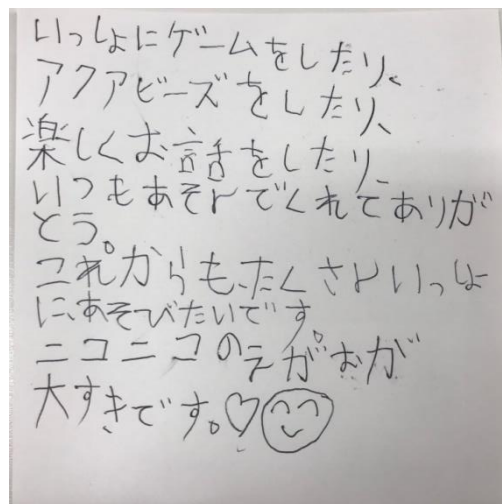 いっしょにゲームをしたり、
アクアビーズをしたり、
楽しくお話をしたり、
いつもあそんでくれてありが
とう。
これからも、たくさんいっしょ
に、あそびたいです。
ニコニコのえがおが
大すきです。♡